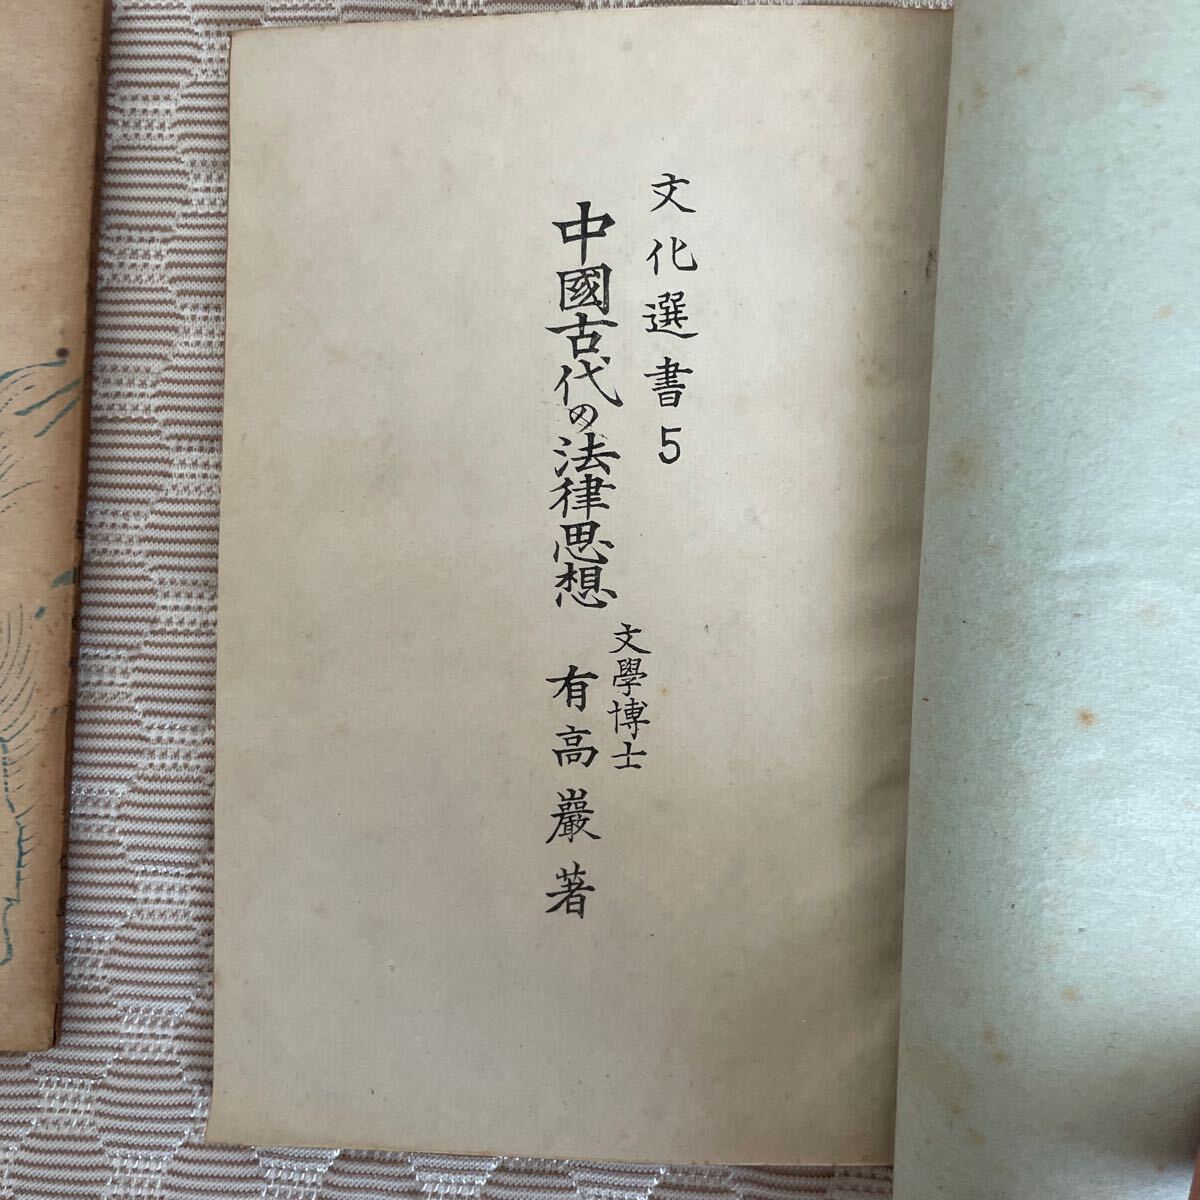 文化選書5
中國古代の法律思想
文學博士
有高巖著